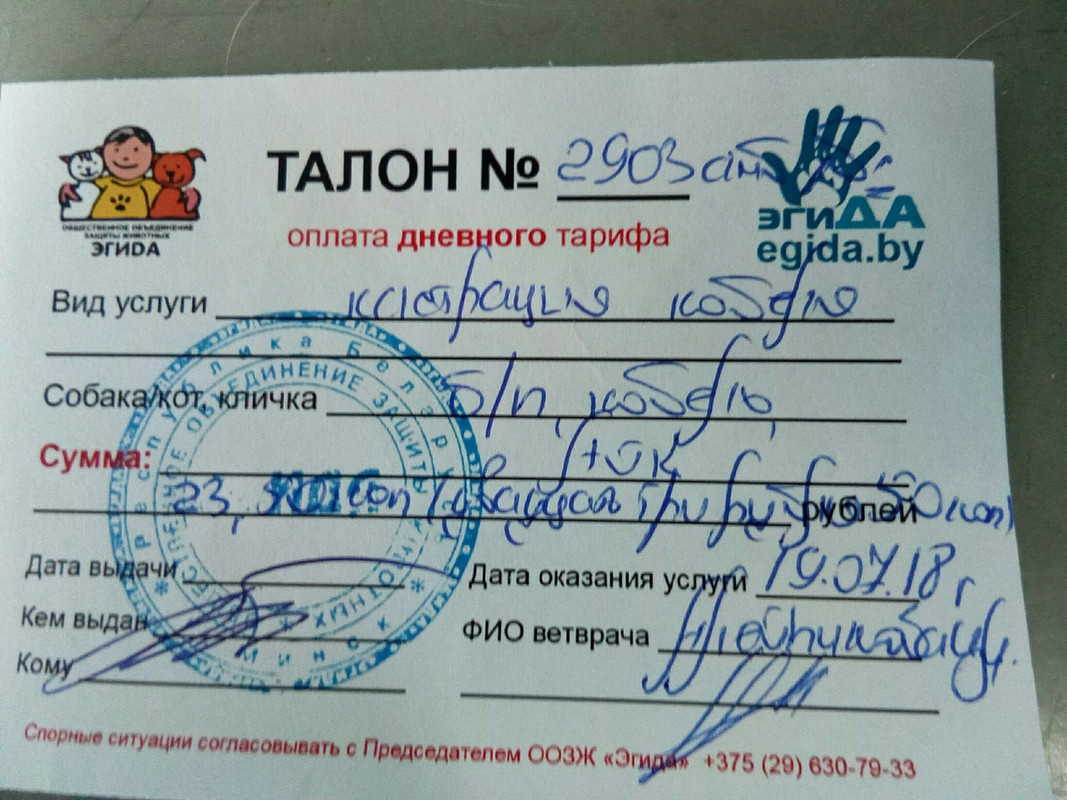 ТАЛОН № 2903
ОБЩЕСТВЕННОЕ ОБЪЕДИНЕНИЕ
ЗАЩИТЫ ЖИВОТНЫХ
ЭГИДА
эгиДА
egida.by
оплата дневного тарифа
Вид услуги кастрация кобеля
Собака/кот, кличка б/п, кобель
Сумма:
23, 50 коп (двадцать три рублей 50 коп)
Дата выдачи
Дата оказания услуги 19.07.18 г
Кем выдан
ФИО ветврача
Кому
Республика Беларусь
ОБЪЕДИНЕНИЕ ЗАЩИТЫ ЖИВОТНЫХ
Минск
Спорные ситуации согласовывать с Председателем ООЗЖ «Эгида» +375 (29) 630-79-33